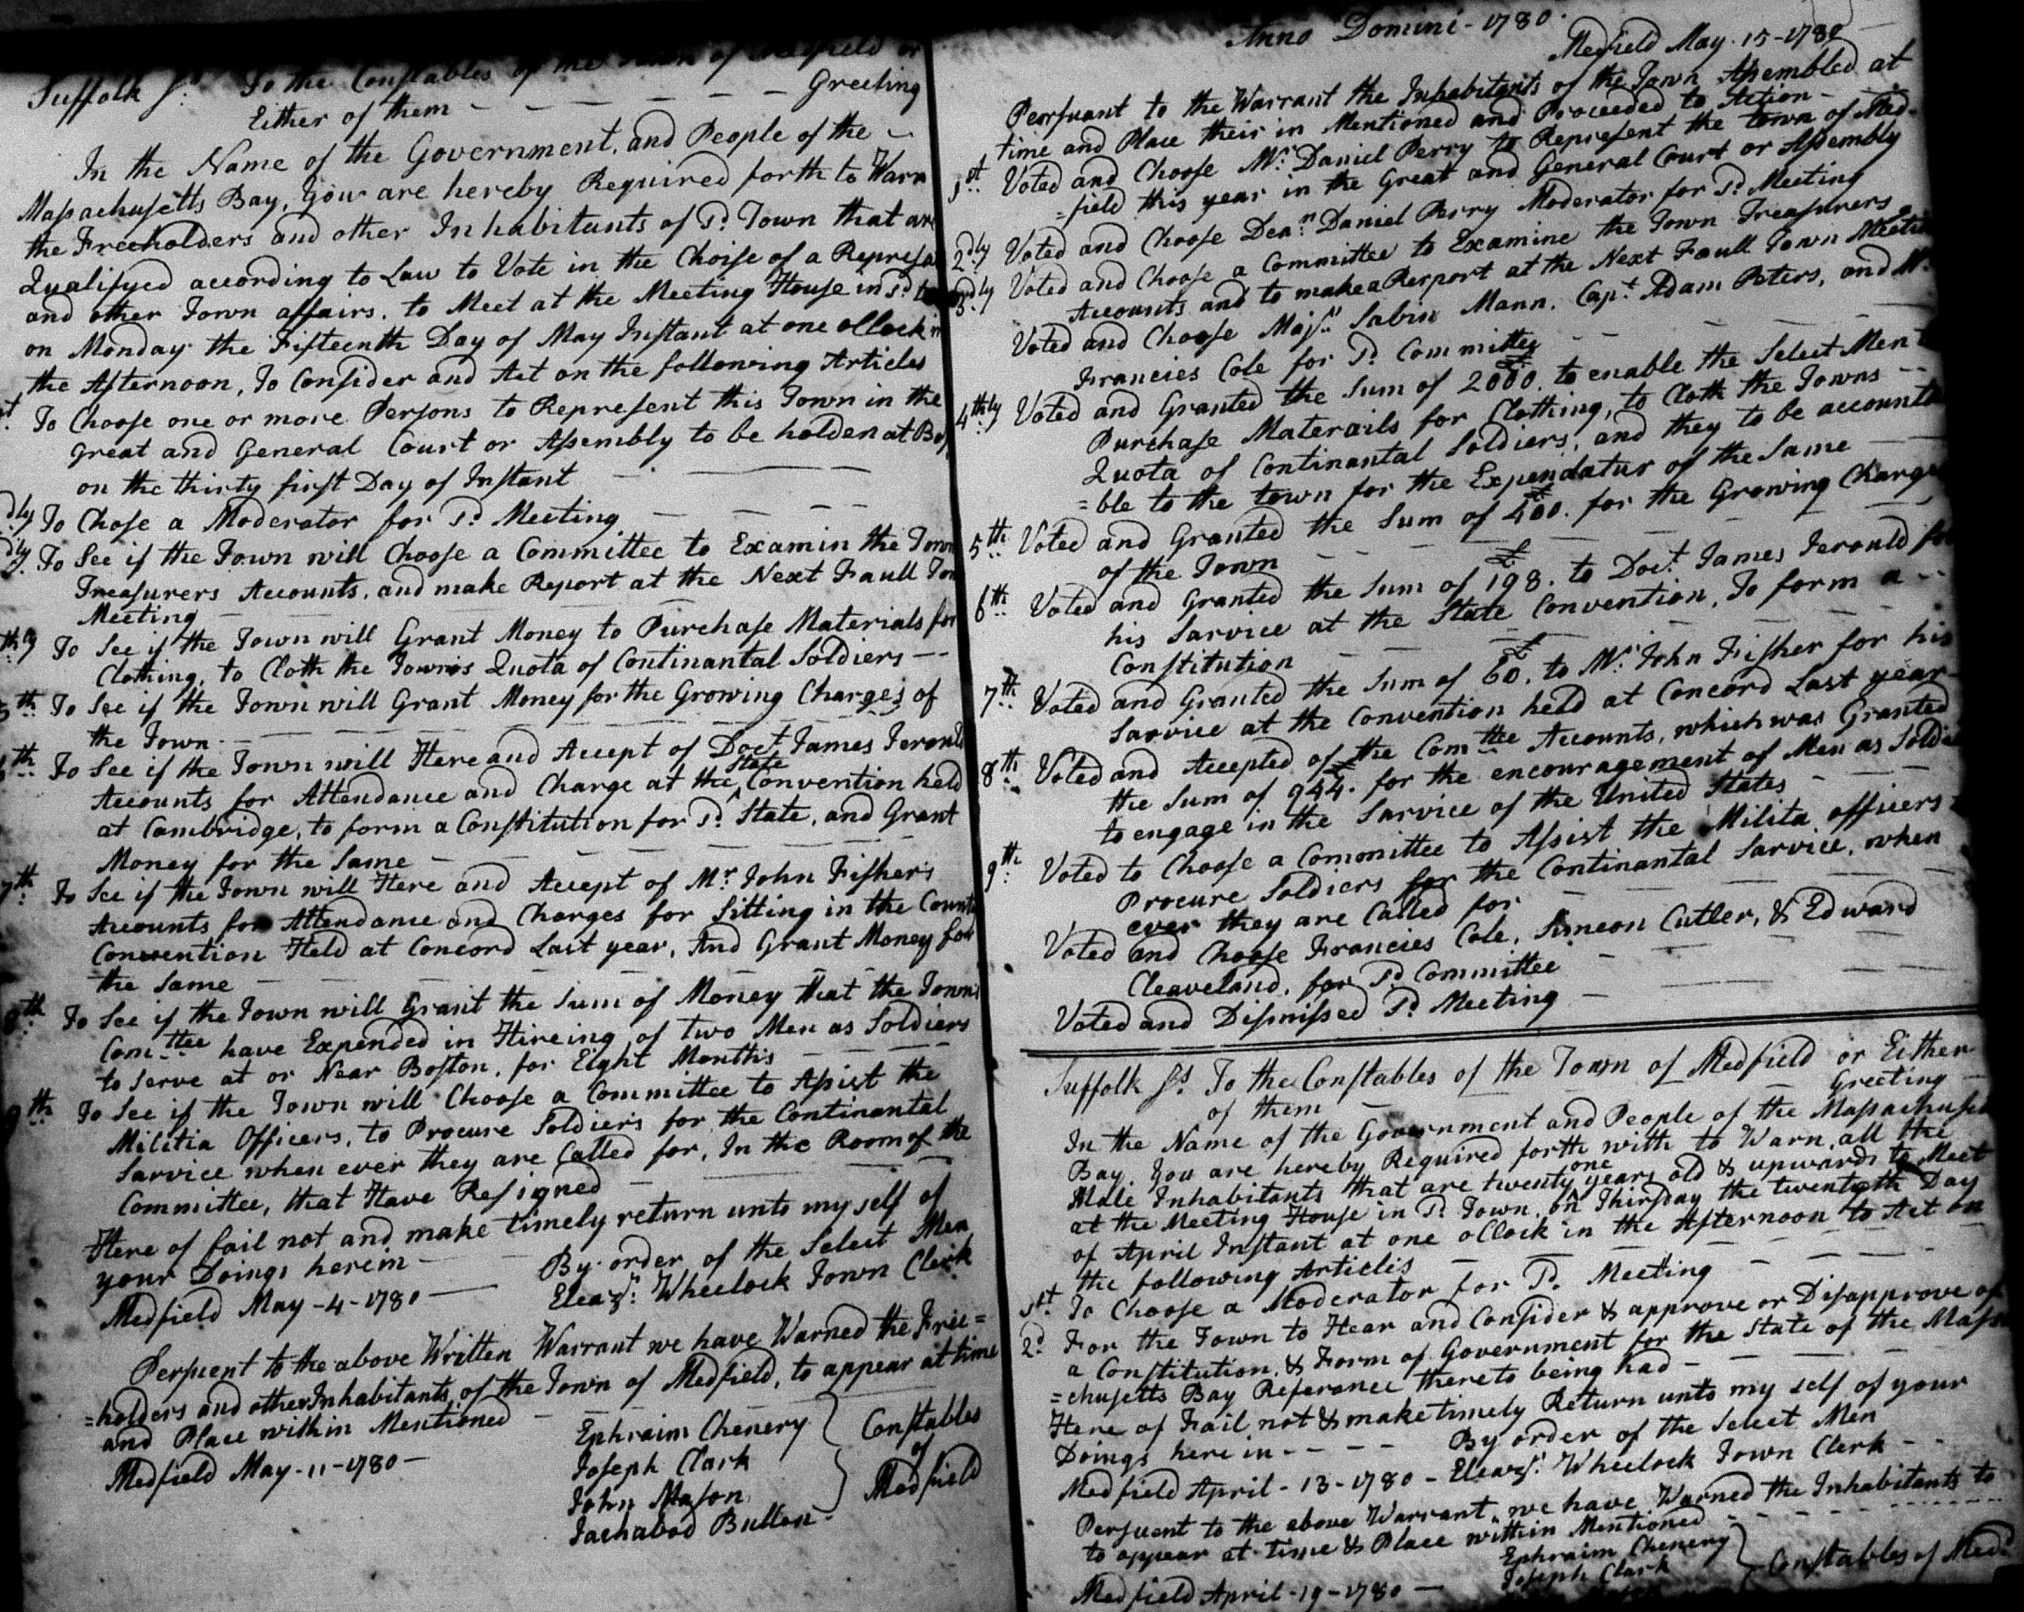 Suffolk Ss. To the Constables of the Town of Medfield or
Either of them — — — — — — Greeting
In the Name of the Government, and People of the —
Massachusetts Bay, you are hereby Required forth to Warn
the Freeholders and other Inhabitants of Sd. Town that are
Qualifyed according to Law to Vote in the Choise of a
and other Town affairs. to Meet at the Meeting House in Sd.
on Monday the Fifteenth Day of May Instant at one oClock in
the Afternoon, To Consider and Act on the following Articles
To Choose one or more Persons to Represent this Town in the
Great and General Court or Assembly to be holden at
on the thirty first Day of Instant — — —
To Chose a Moderator for Sd. Meeting — — —
To See if the Town will Choose a Committee to Examin the Town
Treasurers Accounts, and make Report at the Next Faull
Meeting —
thly To See if the Town will Grant Money to Purchase Materials for
Clothing, to Cloth the Towns Quota of Continantal Soldiers —
5th To See if the Town will Grant Money for the Growing Charges of
the Town — — —
6th To See if the Town will Here and Accept of Doct. James Jerould
Accounts for Attendance and Charge at the State Convention held
at Cambridge, to form a Constitution for Sd. State, and Grant
Money for the Same — — —
7th To See if the Town will Here and Accept of Mr. John Fishers
Accounts for Attendance and Charges for Sitting in the
Convention Held at Concord Last year, And Grant Money for
the Same — — —
8th To See if the Town will Grant the Sum of Money that the Towns
Comttee have Expended in Hireing of two Men as Soldiers
to Serve at or Near Boston, for Eight Months — — —
9th To See if the Town will Choose a Committee to Assist the
Militia Officers, to Procure Soldiers for the Continantal
Sarvice when ever they are Called for, In the Room of the
Committee, that Have Resigned — — —
Here of fail not and make timely return unto my self of
your Doings herein — By order of the Select Men
Medfield May - 4 - 1780 — Eleazr. Wheelock Town Clerk
Persuent to the above Written Warrant we have Warned the Free=
=holders and other Inhabitants of the Town of Medfield, to appear at time
and Place within Mentioned —
Medfield May - 11 - 1780 —
Ephraim Chenery
Joseph Clark
John Mason
Jachabod Bullen
Constables
of
Medfield
Anno Domini - 1780.
Medfield May - 15 - 1780
Persuant to the Warrant the Inhabitants of the Town Assembled at
time and Place their in Mentioned and Proceeded to Action —
1st. Voted and Choose Mr. Daniel Perry to Represent the town of Med-
=field this year in the Great and General Court or Assembly
2dly Voted and Choose Dean. Daniel Perry Moderator for Sd. Meeting
3dly Voted and Choose a Committee to Examine the Town Treasurers
Accounts and to make a Report at the Next Faull Town
Voted and Choose Majr. Sabin Mann. Capt. Adam Peters, and Mr.
Francies Cole for Sd. Committee — — —
4thly Voted and Granted the Sum of £2000. to enable the Select Men to
Purchase Materails for Clothing, to Cloth the Towns —
Quota of Continantal Soldiers, and they to be accounta
=ble to the town for the Expendatur of the Same — —
5th Voted and Granted the Sum of £400. for the Growing Charge
of the Town — — —
6th Voted and Granted the Sum of £198. to Doct. James Jerould for
his Sarvice at the State Convention, To form a —
Constitution — — —
7th Voted and Granted the Sum of £60. to Mr. John Fisher for his
Sarvice at the Convention held at Concord Last year
8th Voted and Accepted of the Comttee Accounts, which was Granted
the Sum of £944. for the encouragement of Men as
to engage in the Sarvice of the United States — — —
9th Voted to Choose a Committee to Assist the Milita officers
Procure Soldiers for the Continantal Sarvice, when
ever they are Called for — — —
Voted and Choose Francies Cole, Simeon Cutler, & Edward
Cleaveland, for Sd. Committee — — —
Voted and Dismissed Sd. Meeting — — —
Suffolk Ss. To the Constables of the Town of Medfield or Either
of them — Greeting
In the Name of the Government and People of the
Bay. You are hereby Required forth with to Warn all the
Male Inhabitants that are twenty one years old & upwards to Meet
at the Meeting House in Sd. Town, on Thirsday the twentyth Day
of April Instant at one oClock in the Afternoon to Act on
the following Articles — — —
1st. To Choose a Moderator for Sd. Meeting — — —
2d For the Town to Hear and Consider & approve or Disapprove of
a Constitution & Form of Government for the State of the Massa
=chusetts Bay Referance thereto being had — — —
Here of Fail not & make timely Return unto my self of your
Doings here in - - - - By order of the Select Men
Medfield April - 13 - 1780 - Eleazr. Wheelock Town Clerk —
Persuent to the above Warrant, we have Warned the Inhabitants to
to appear at time & Place within Mentioned
Medfield April - 19 - 1780 —
Ephraim Chenery
Joseph Clark
Constables of